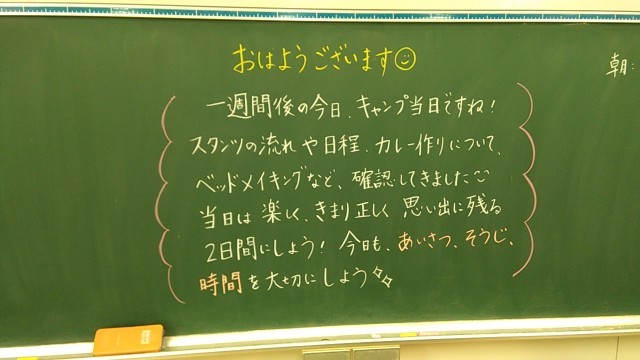 おはようございます
朝:
一週間後の今日、キャンプ当日ですね!
スタンツの流れや日程、カレー作りについて、
ベッドメイキングなど、確認してきました
当日は楽しく、きまり正しく思い出に残る
2日間にしよう!今日も、あいさつ、そうじ、
時間を大切にしよう